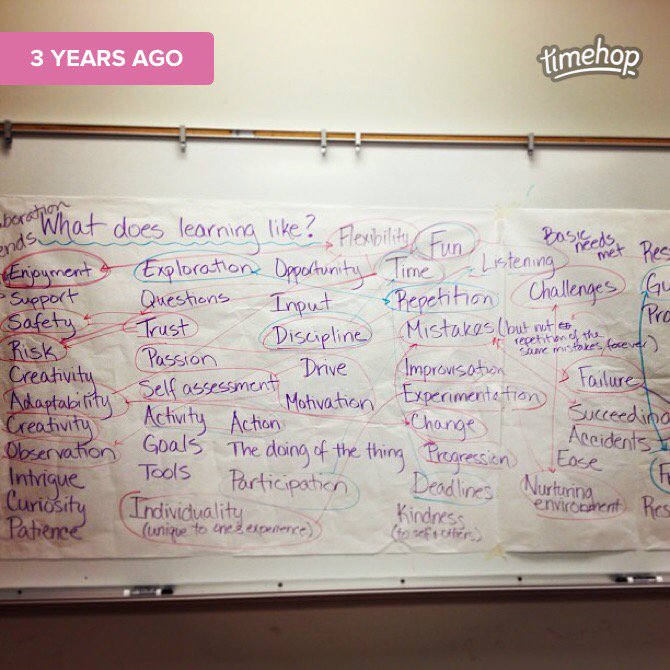 3 YEARS AGO
timehop
boration
ends
What does learning like?
Enjoyment
Support
Safety
Risk
Creativity
Adaptability
Creativity
Observation
Intrigue
Curiosity
Patience
Exploration
Questions
Trust
Passion
Self assessment
Activity
Goals
Tools
Individuality
Opportunity
Input
Discipline
Drive
Motivation
Action
The doing of the thing
Participation
Flexibility
Fun
Time
Repetition
Mistakes (but not
repetition of the
same mistakes, forever)
Improvisation
Experimentation
Change
Progression
Deadlines
Kindness
(to self + others)
Listening
Basic needs
met
Challenges
Failure
Succeeding
Accidents
Ease
Nurturing
environment
Res
Gu
Pro
Res